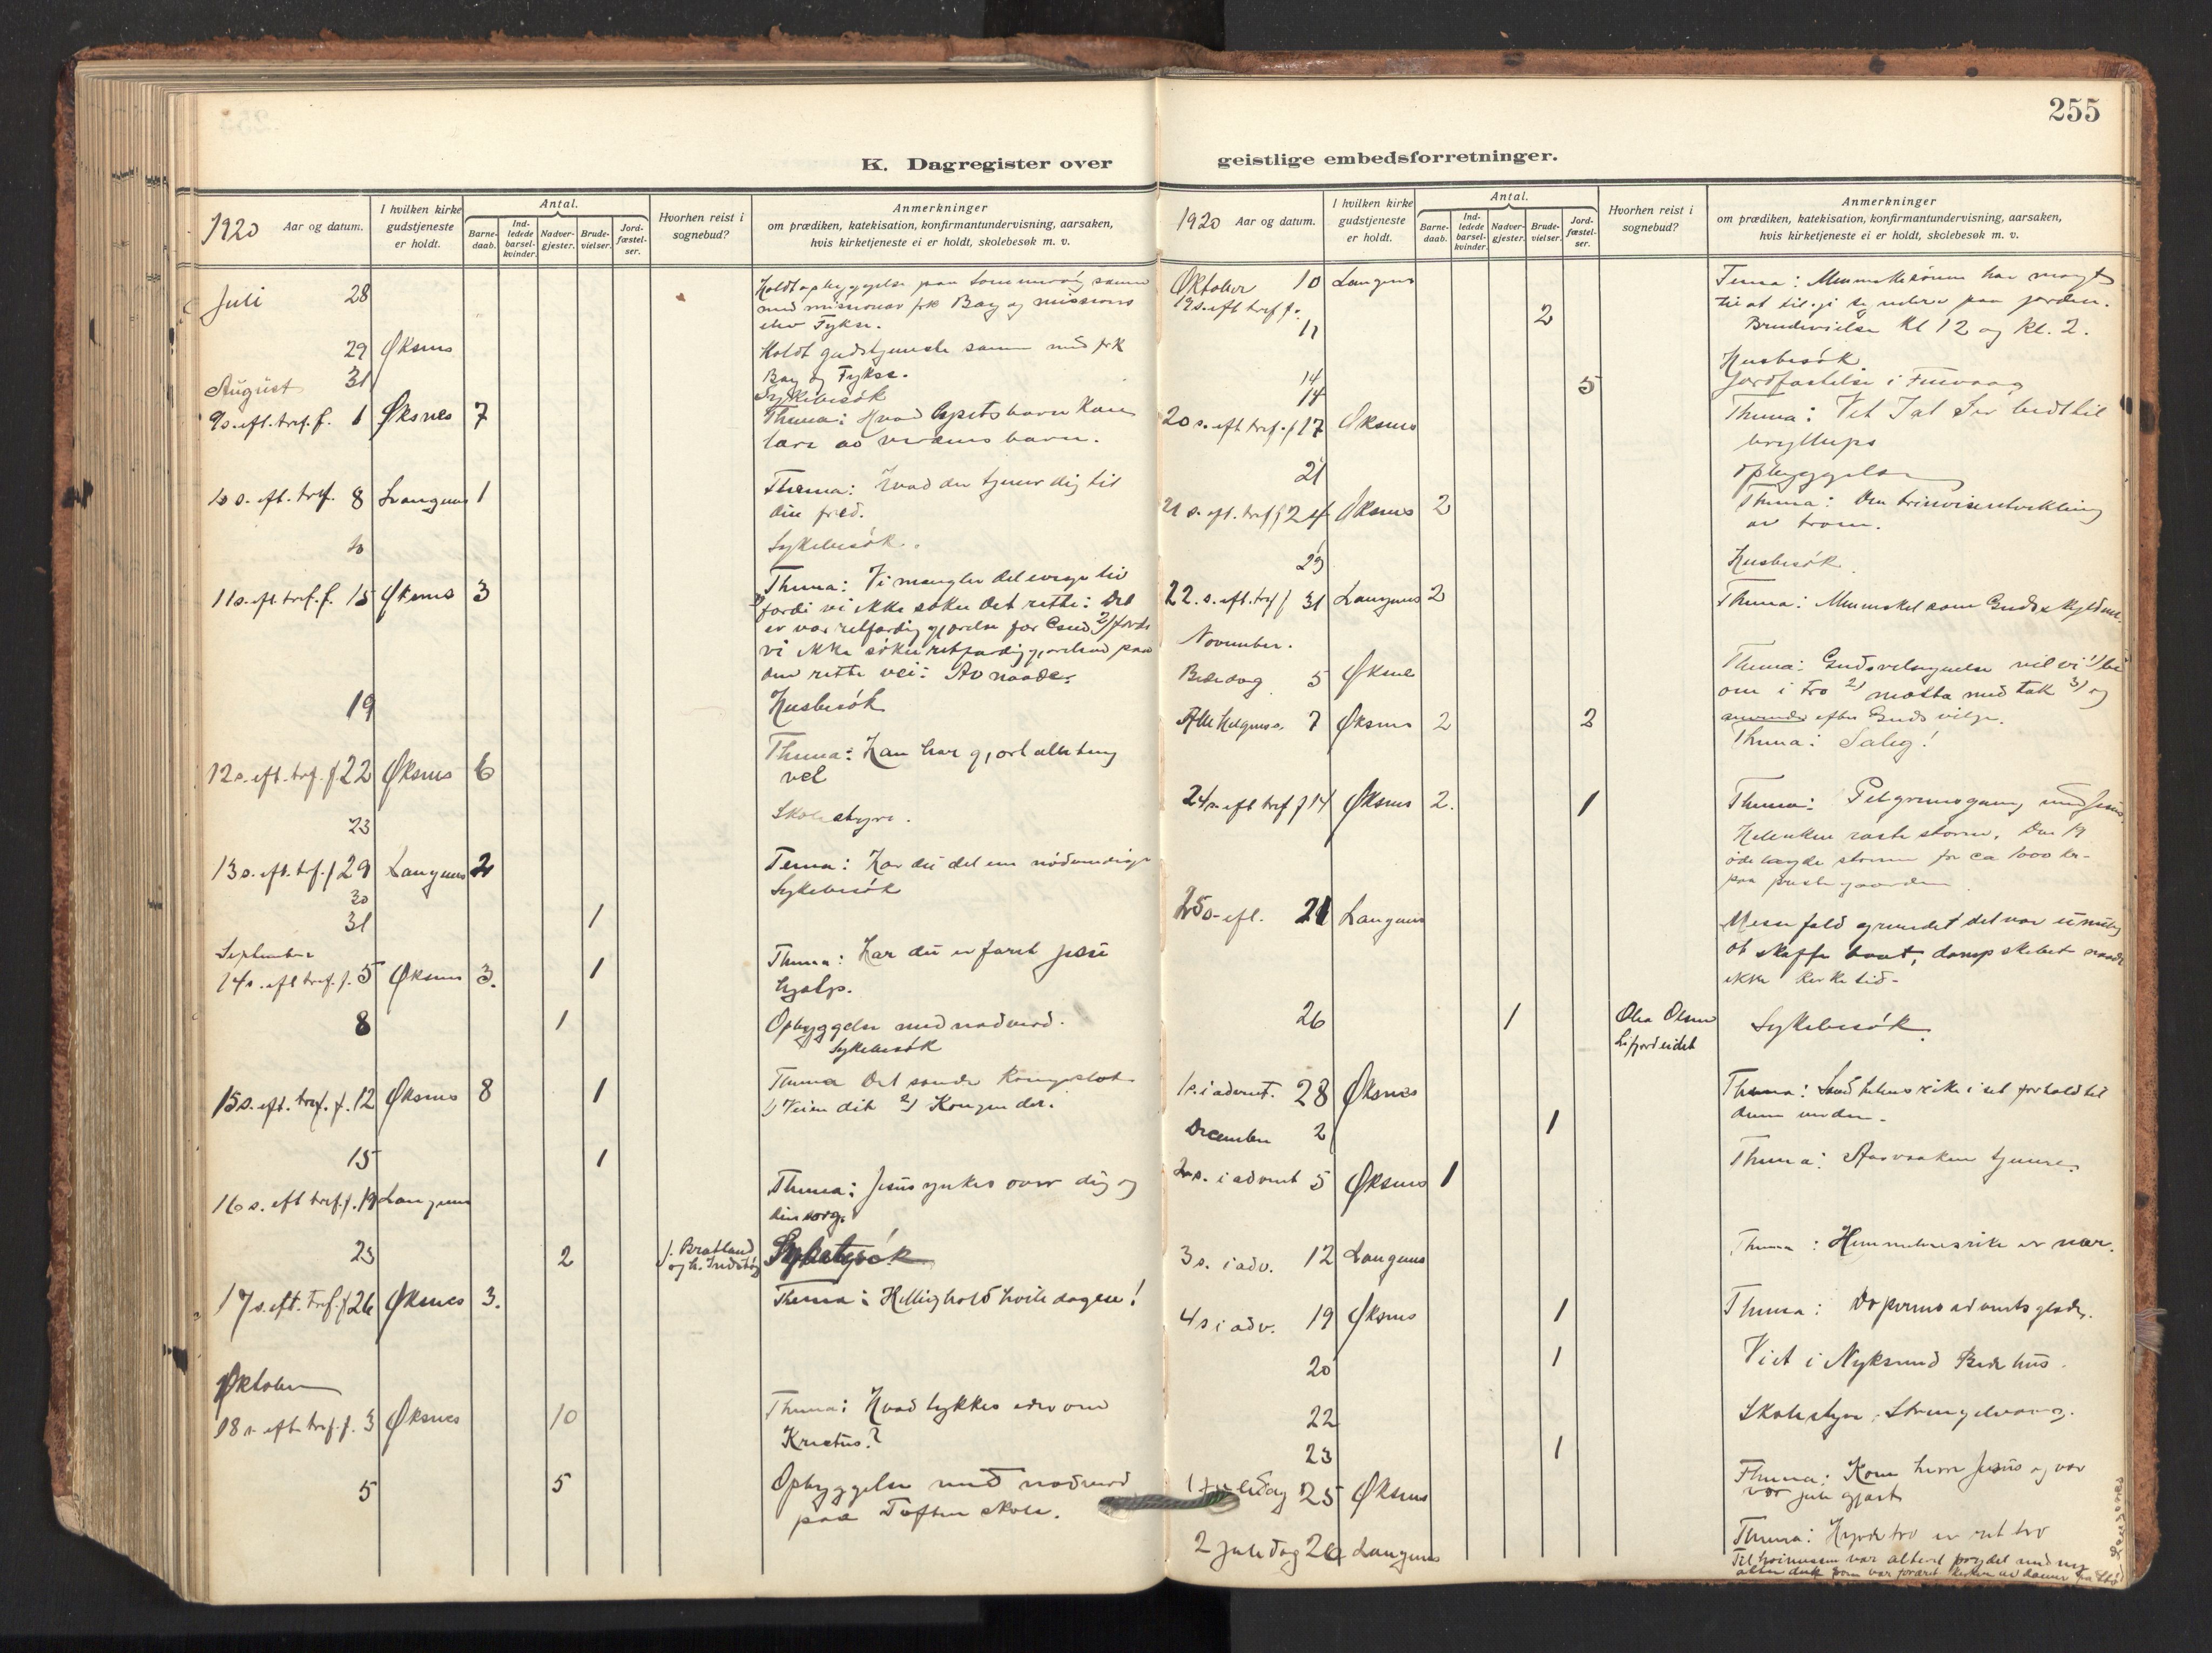 255
K. Dagregister over geistlige embedsforretninger.
1920 Aar og datum.
I hvilken kirke gudstjeneste er holdt.
Antal.
Barne-daab.
Ind-ledede barsel-kvinder.
Nadver-gjester.
Brude-vielser.
Jord-fæstel-ser.
Hvorhen reist i sognebud?
Anmerkninger
om prædiken, katekisation, konfirmantundervisning, aarsaken,
hvis kirketjeneste ei er holdt, skolebesøk m. v.
Juli 28 Holdt opbyggelse paa
med missionær frk Bay og missions
Fykse.
29 Øksnes Holdt gudstjeneste samme med frk
Bay og Fykse.
31 Sykebesøk
August
9 s. eft. tref. f. 1 Øksnes 7 Thema: Hvad kan
lære av verdens barn.
10 s. eft. tref. 8 Langenes 1 Thema: Hvad der tjener dig til
din fred.
10 Sykebesøk.
11 s. eft. tref. f. 15 Øksnes 3 Thema: Vi mangler det evige liv
1) fordi vi ikke søker det rette: Det
er vor retfærdiggjørelse for Gud 2) fordi
vi ikke søker retfærdiggjørelse paa
den rette vei: Av naade.
19 Husbesøk
12 s. eft. tref. f. 22 Øksnes 6 Thema: Han har gjort alle ting
vel
23 Skolestyre.
13 s. eft. tref. f 29 Langenes 2 Tema: Har du det ene nødvendige
30 Sykebesøk
31 1
September
14 s. eft tref. f. 5 Øksnes 3. 1 Thema: Har du erfaret Jesu
hjælp.
8 1 Opbyggelse med nadverd.
Sykebesøk
15 s. eft. tref. f. 12 Øksnes 8 1 Thema Det sande Kongeslot
1) Veien dit 2) Kongen der.
15 1
16 s. eft tref. f. 19 Langenes Thema: Jesus ynkes over dig og
din sorg.
23 2 J. Bratland Sykebesøk
17 s. eft. Tref. f 26 Øksnes 3. Thema: Hellighold hviledagen!
Oktober
18 s. eft. tref. f. 3 Øksnes 10 Thema: Hvad tykkes eder om
Kristus?
5 5 Opbyggelse med nadverd
paa Toften skole.
1920 Aar og datum.
I hvilken kirke gudstjeneste er holdt.
Antal.
Barne-daab.
Ind-ledede barsel-kvinder.
Nadver-gjester.
Brude-vielser.
Jord-fæstel-ser.
Hvorhen reist i sognebud?
Anmerkninger
om prædiken, katekisation, konfirmantundervisning, aarsaken,
hvis kirketjeneste ei er holdt, skolebesøk m. v.
Oktober 10 Langenes Tema: Menneskesønnen har magt
19 s. eft tref f. 2 til at tilgi synderne paa jorden.
11 Brudevielse kl 12 og kl. 2.
14 Husbesøk
14 5 Jordfæstelse i
20 s. eft tref. f 17 Øksnes Thema: Vet I at I er bedt til
bryllups
21 Opbyggelse
21 s. eft. tref f 24 Øksnes 2 Thema: Den trinvise utvikling
av troen.
29 Husbesøk.
22. s. eft. tref f 31 Langenes 2 Thema: Mennesket som Guds skyldner.
November.
Bededag 5 Øksnes Thema: Guds velsignelse vil vi 1) be
om i tro 2) motta med tak 3) og
anvende efter Guds vilje.
Alle Helgens s. 7 Øksnes 2 2 Thema: Salig!
24 s. eft tref f 14 Øksnes 2. 1 Thema: Pilgrimsgang med Jesus.
Hele uken raste storm. Den 19
ødelagde stormen for ca 1000 kr.
paa prestegaarden.
25 s. eft. 21 Langenes Messefald grundet det var umulig
at skaffe baat, dampskibet naadde
ikke kirketid.
26 1 Olea Olsen
Sykebesøk.
1 s. i advent. 28 Øksnes Thema: i sit forhold til
denne verden.
December 2 1
2 s. i advent 5 Øksnes 1 Thema: Aarvaaken tjener.
3 s. i adv. 12 Langenes Thema: Himmelens rike er nær.
4 s i adv. 19 Øksnes 1 Thema: Døperens adventsglæde.
20 1 Viet i Nyksund Bedehus.
22 Skolestyre, Strengelvaag.
23 1
1 Juledag 25 Øksnes Thema: Kom herre Jesus og vær
vor jule gjæst
2 Juledag 26 Langenes Thema: Hyrdetro er ret tro
var alteret prydet med ny
alterduk som var foræret kirken av damer fra
Langenes